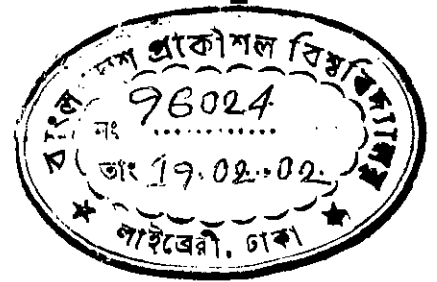 বাংলাদেশ প্রকৌশল বিশ্ববিদ্যালয়
নং 96024
তাং 19.02.02
লাইব্রেরী, ঢাকা